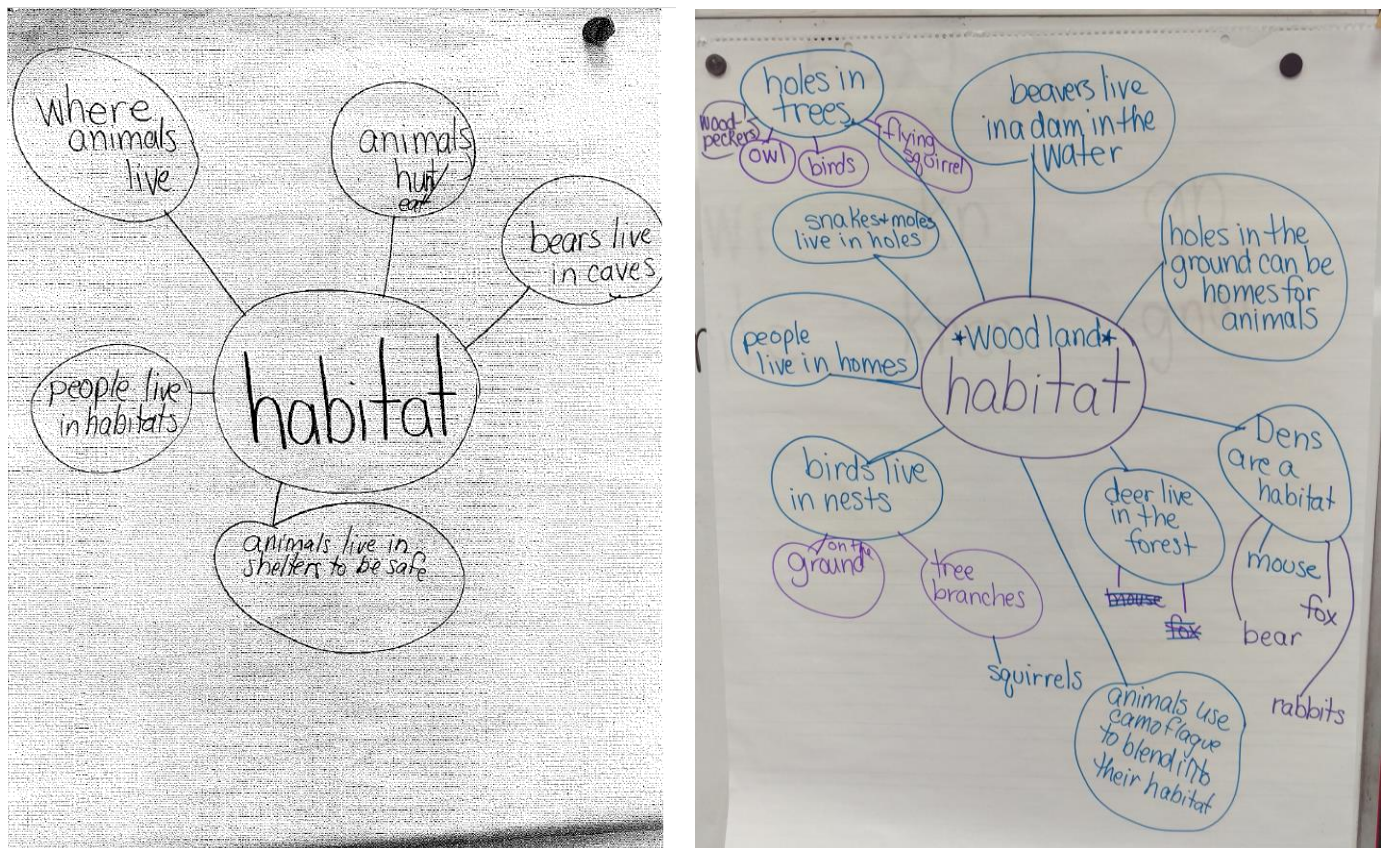 where
animals
live
animals
hunt/
eat
bears live
in caves
people live
in habitats
habitat
animals live in
shelters to be safe
holes in
trees
wood-
peckers
owl
birds
flying
squirrel
beavers live
in a dam in the
water
snakes + moles
live in holes
holes in the
ground can be
homes for
animals
people
live in homes
*woodland*
habitat
birds live
in nests
on the
ground
tree
branches
squirrels
deer live
in the
forest
mouse
fox
Dens
are a
habitat
mouse
fox
bear
rabbits
animals use
camoflague
to blend into
their habitat